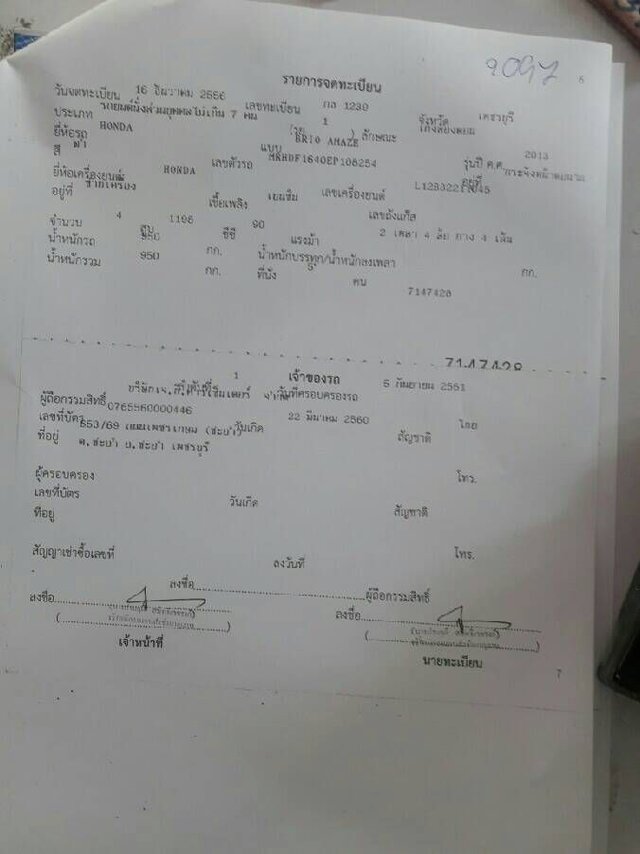 9097 6
รายการจดทะเบียน
วันจดทะเบียน 16 ธันวาคม 2556 เลขทะเบียน กล 1239 จังหวัด เพชรบุรี
ประเภท รถยนต์นั่งส่วนบุคคลไม่เกิน 7 คน (รย. 1 ) ลักษณะ เก๋งสองตอน
ยี่ห้อรถ HONDA แบบ BRIO AMAZE รุ่นปี ค.ศ. 2013
สี ดำ เลขตัวรถ MRHDF1640EP108254
ยี่ห้อเครื่องยนต์ HONDA เลขเครื่องยนต์
อยู่ที่ เชื้อเพลิง เบนซิน เลขถังแก๊ส
จำนวน 4 สูบ 1198 ซีซี 90 แรงม้า 2 เพลา 4 ล้อ ยาง 4 เส้น
น้ำหนักรถ 950 กก. น้ำหนักบรรทุก/น้ำหนักลงเพลา กก.
น้ำหนักรวม 950 กก. ที่นั่ง คน
7147428
7147428
1 เจ้าของรถ
วันที่ครอบครองรถ 5 กันยายน 2561
ผู้ถือกรรมสิทธิ์
เลขที่บัตร 0765560000446 วันเกิด 22 มีนาคม 2560 สัญชาติ ไทย
ที่อยู่ 853/69 ถนนเพชรเกษม (ชะอำ)
ต.ชะอำ อ.ชะอำ เพชรบุรี
ผู้ครอบครอง โทร.
เลขที่บัตร วันเกิด สัญชาติ
ที่อยู่
สัญญาเช่าซื้อเลขที่ ลงวันที่ โทร.
ลงชื่อ ผู้ถือกรรมสิทธิ์
ลงชื่อ ลงชื่อ
เจ้าหน้าที่ นายทะเบียน
7